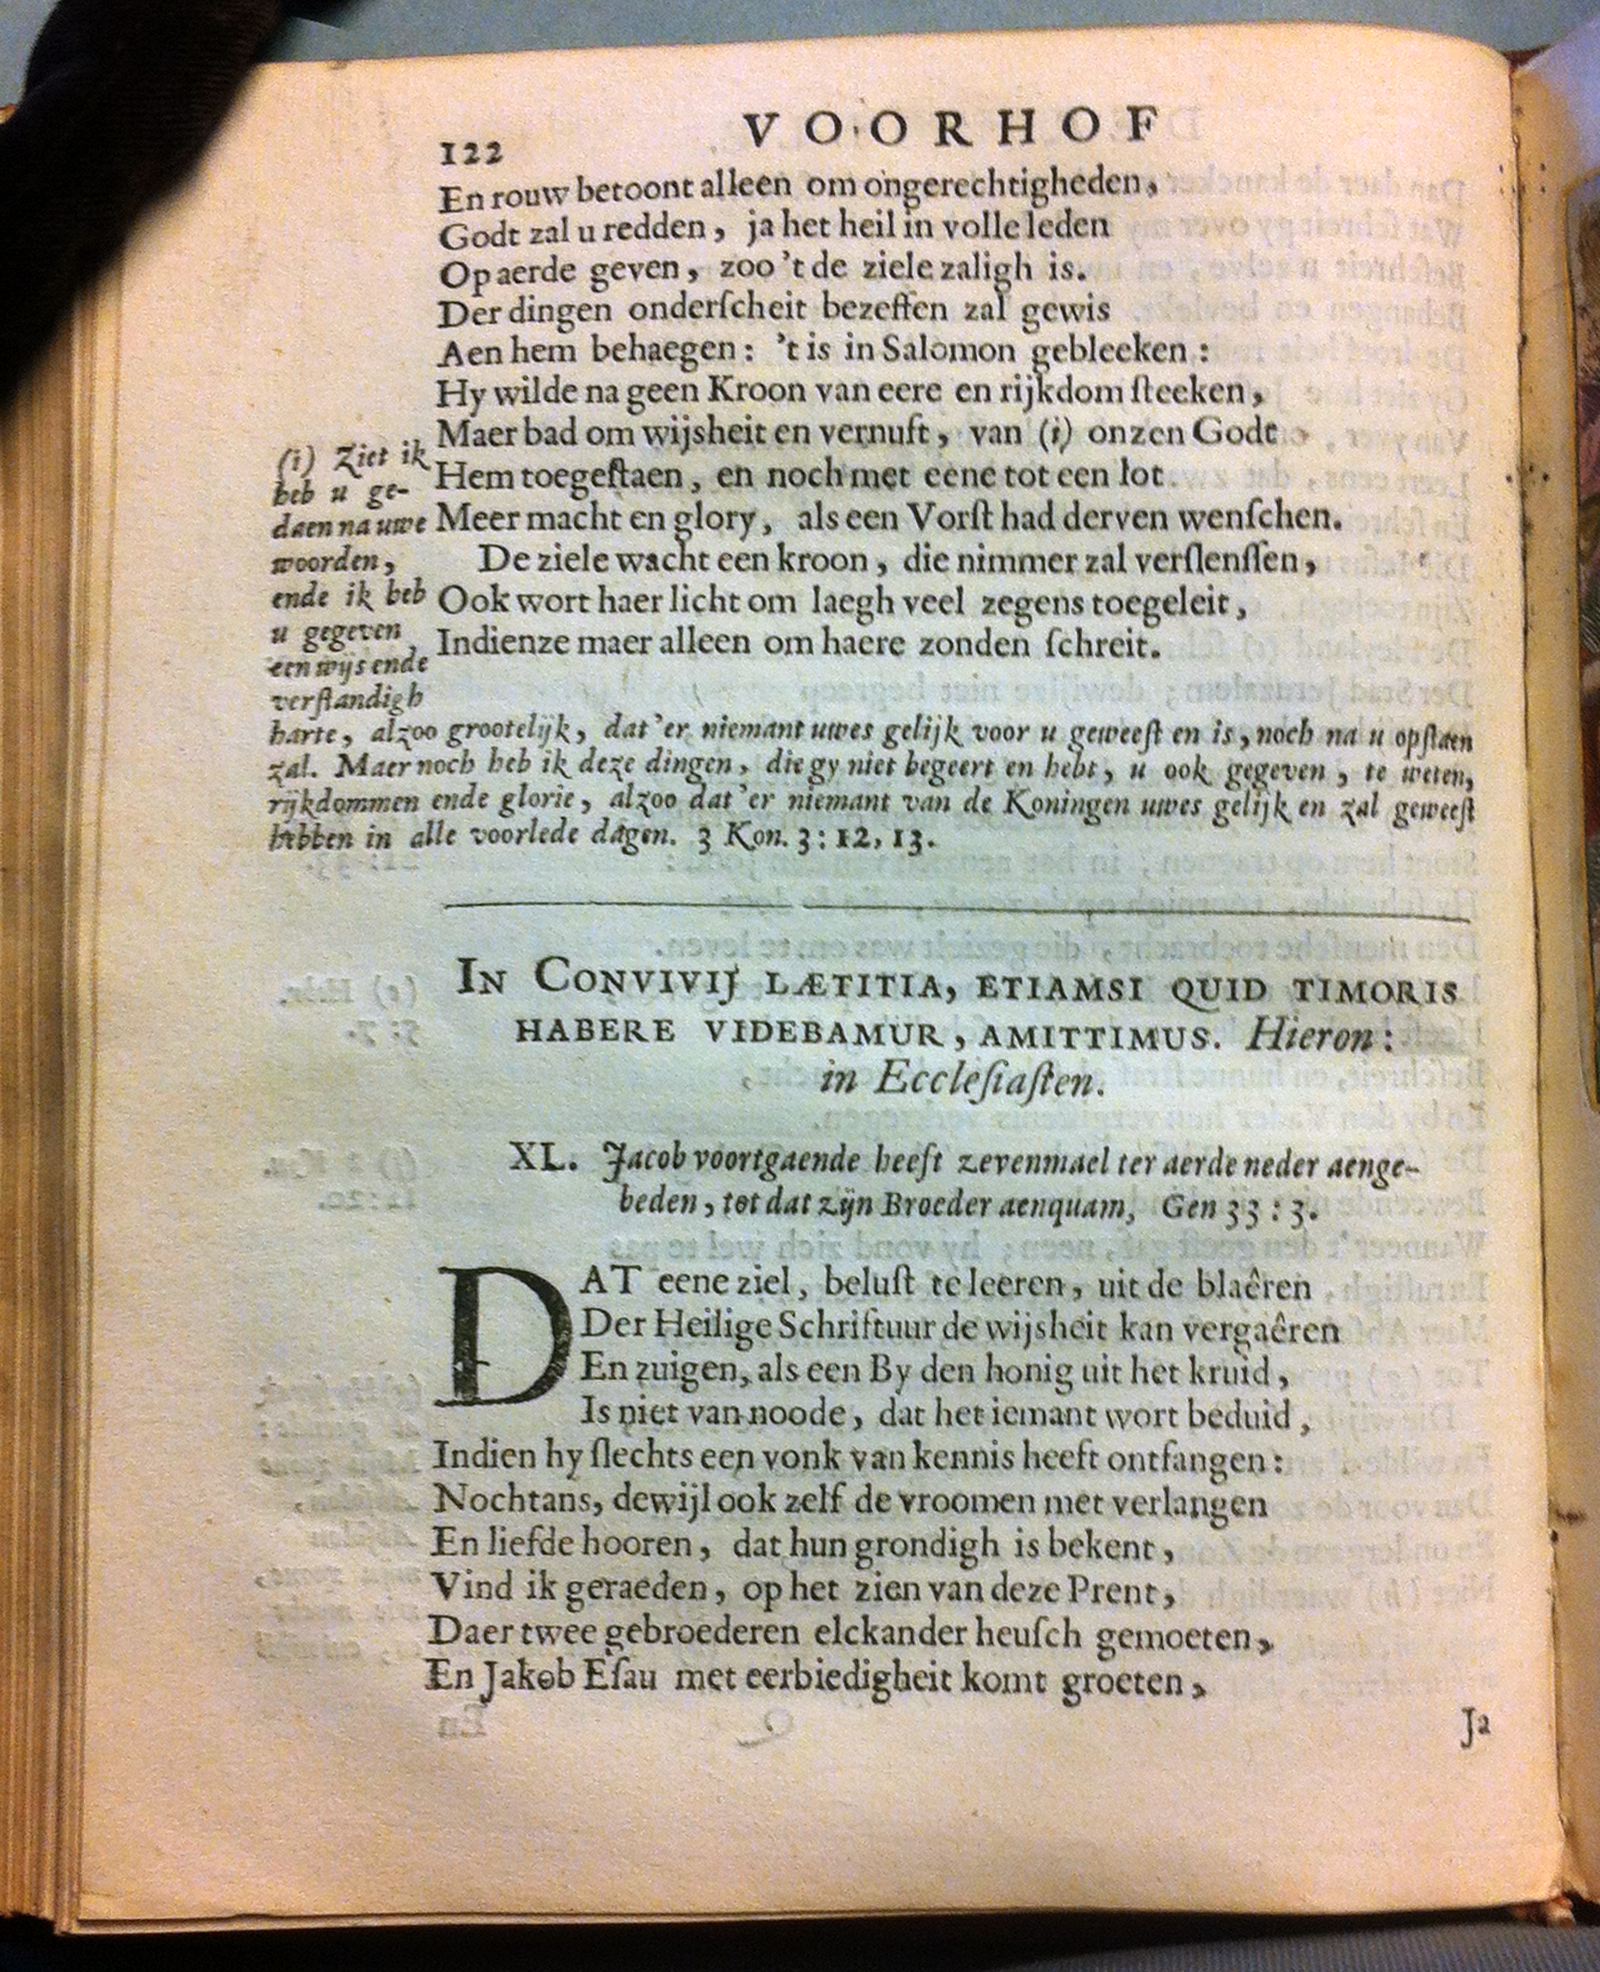 122
VOORHOF
En rouw betoont alleen om ongerechtigheden,
Godt zal u redden, ja het heil in volle leden
Op aerde geven, zoo 't de ziele zaligh is.
Der dingen onderſcheit bezeffen zal gewis
Aen hem behaegen: 't is in Salomon gebleeken:
Hy wilde na geen Kroon van eere en rijkdom ſteeken,
Maer bad om wijsheit en vernuft, van (i) onzen Godt
Hem toegeſtaen, en noch met eene tot een lot
Meer macht en glory, als een Vorſt had derven wenſchen.
De ziele wacht een kroon, die nimmer zal verſlenſſen,
Ook wort haer licht om laegh veel zegens toegeleit,
Indienze maer alleen om haere zonden ſchreit.
(i) Ziet ik
heb u ge-
daen na uwe
woorden,
ende ik heb
u gegeven
een wijs ende
verſtandigh
harte, alzoo grootelijk, dat'er niemant uwes gelijk voor u geweeſt en is, noch na u opſtaen
zal. Maer noch heb ik deze dingen, die gy niet begeert en hebt, u ook gegeven, te weten,
rijkdommen ende glorie, alzoo dat'er niemant van de Koningen uwes gelijk en zal geweeſt
hebben in alle voorlede dagen. 3 Kon. 3: 12, 13.
IN CONVIVIJ LÆTITIA, ETIAMSI QUID TIMORIS
HABERE VIDEBAMUR, AMITTIMUS. Hieron:
in Eccleſiaſten.
XL. Jacob voortgaende heeft zevenmael ter aerde neder aenge-
beden, tot dat zijn Broeder aenquam, Gen 33: 3.
DAT eene ziel, beluſt te leeren, uit de blaêren
Der Heilige Schriftuur de wijsheit kan vergaêren
En zuigen, als een By den honig uit het kruid,
Is niet van noode, dat het iemant wort beduid,
Indien hy ſlechts een vonk van kennis heeft ontfangen:
Nochtans, dewijl ook zelf de vroomen met verlangen
En liefde hooren, dat hun grondigh is bekent,
Vind ik geraeden, op het zien van deze Prent,
Daer twee gebroederen elckander heuſch gemoeten,
En Jakob Eſau met eerbiedigheit komt groeten,
Ja